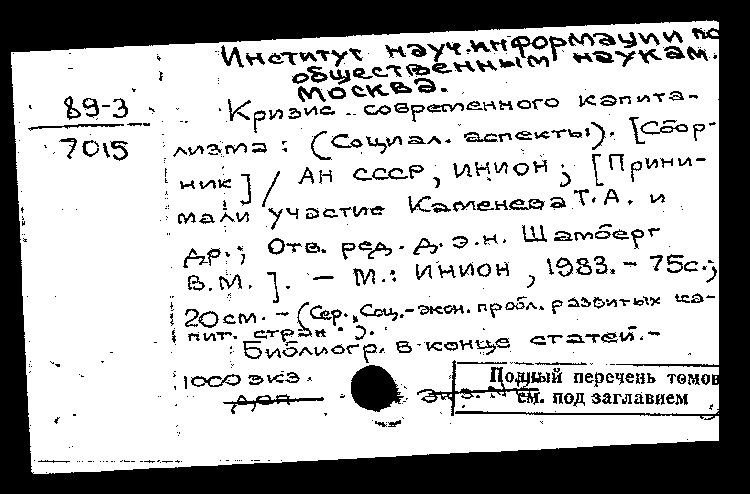 Институт науч. информации по
общественным наукам.
Москва.
89-3
7015
Кризис современного капита-
лизма : (Социал. аспекты). [Сбор-
ник] / АН СССР, ИНИОН ; [Прини-
мали участие Каменева Т.А. и
др. ; Отв. ред. д.э.н. Шамберг
В.М. ]. - М.: ИНИОН , 1983. - 75с. ;
20см. - (Сер. "Соц.-экон. пробл. развитых ка-
пит. стран").
Библиогр. в конце статей. -
1000 экз.
ДЕП
экз. №
Полный перечень томов
см. под заглавием